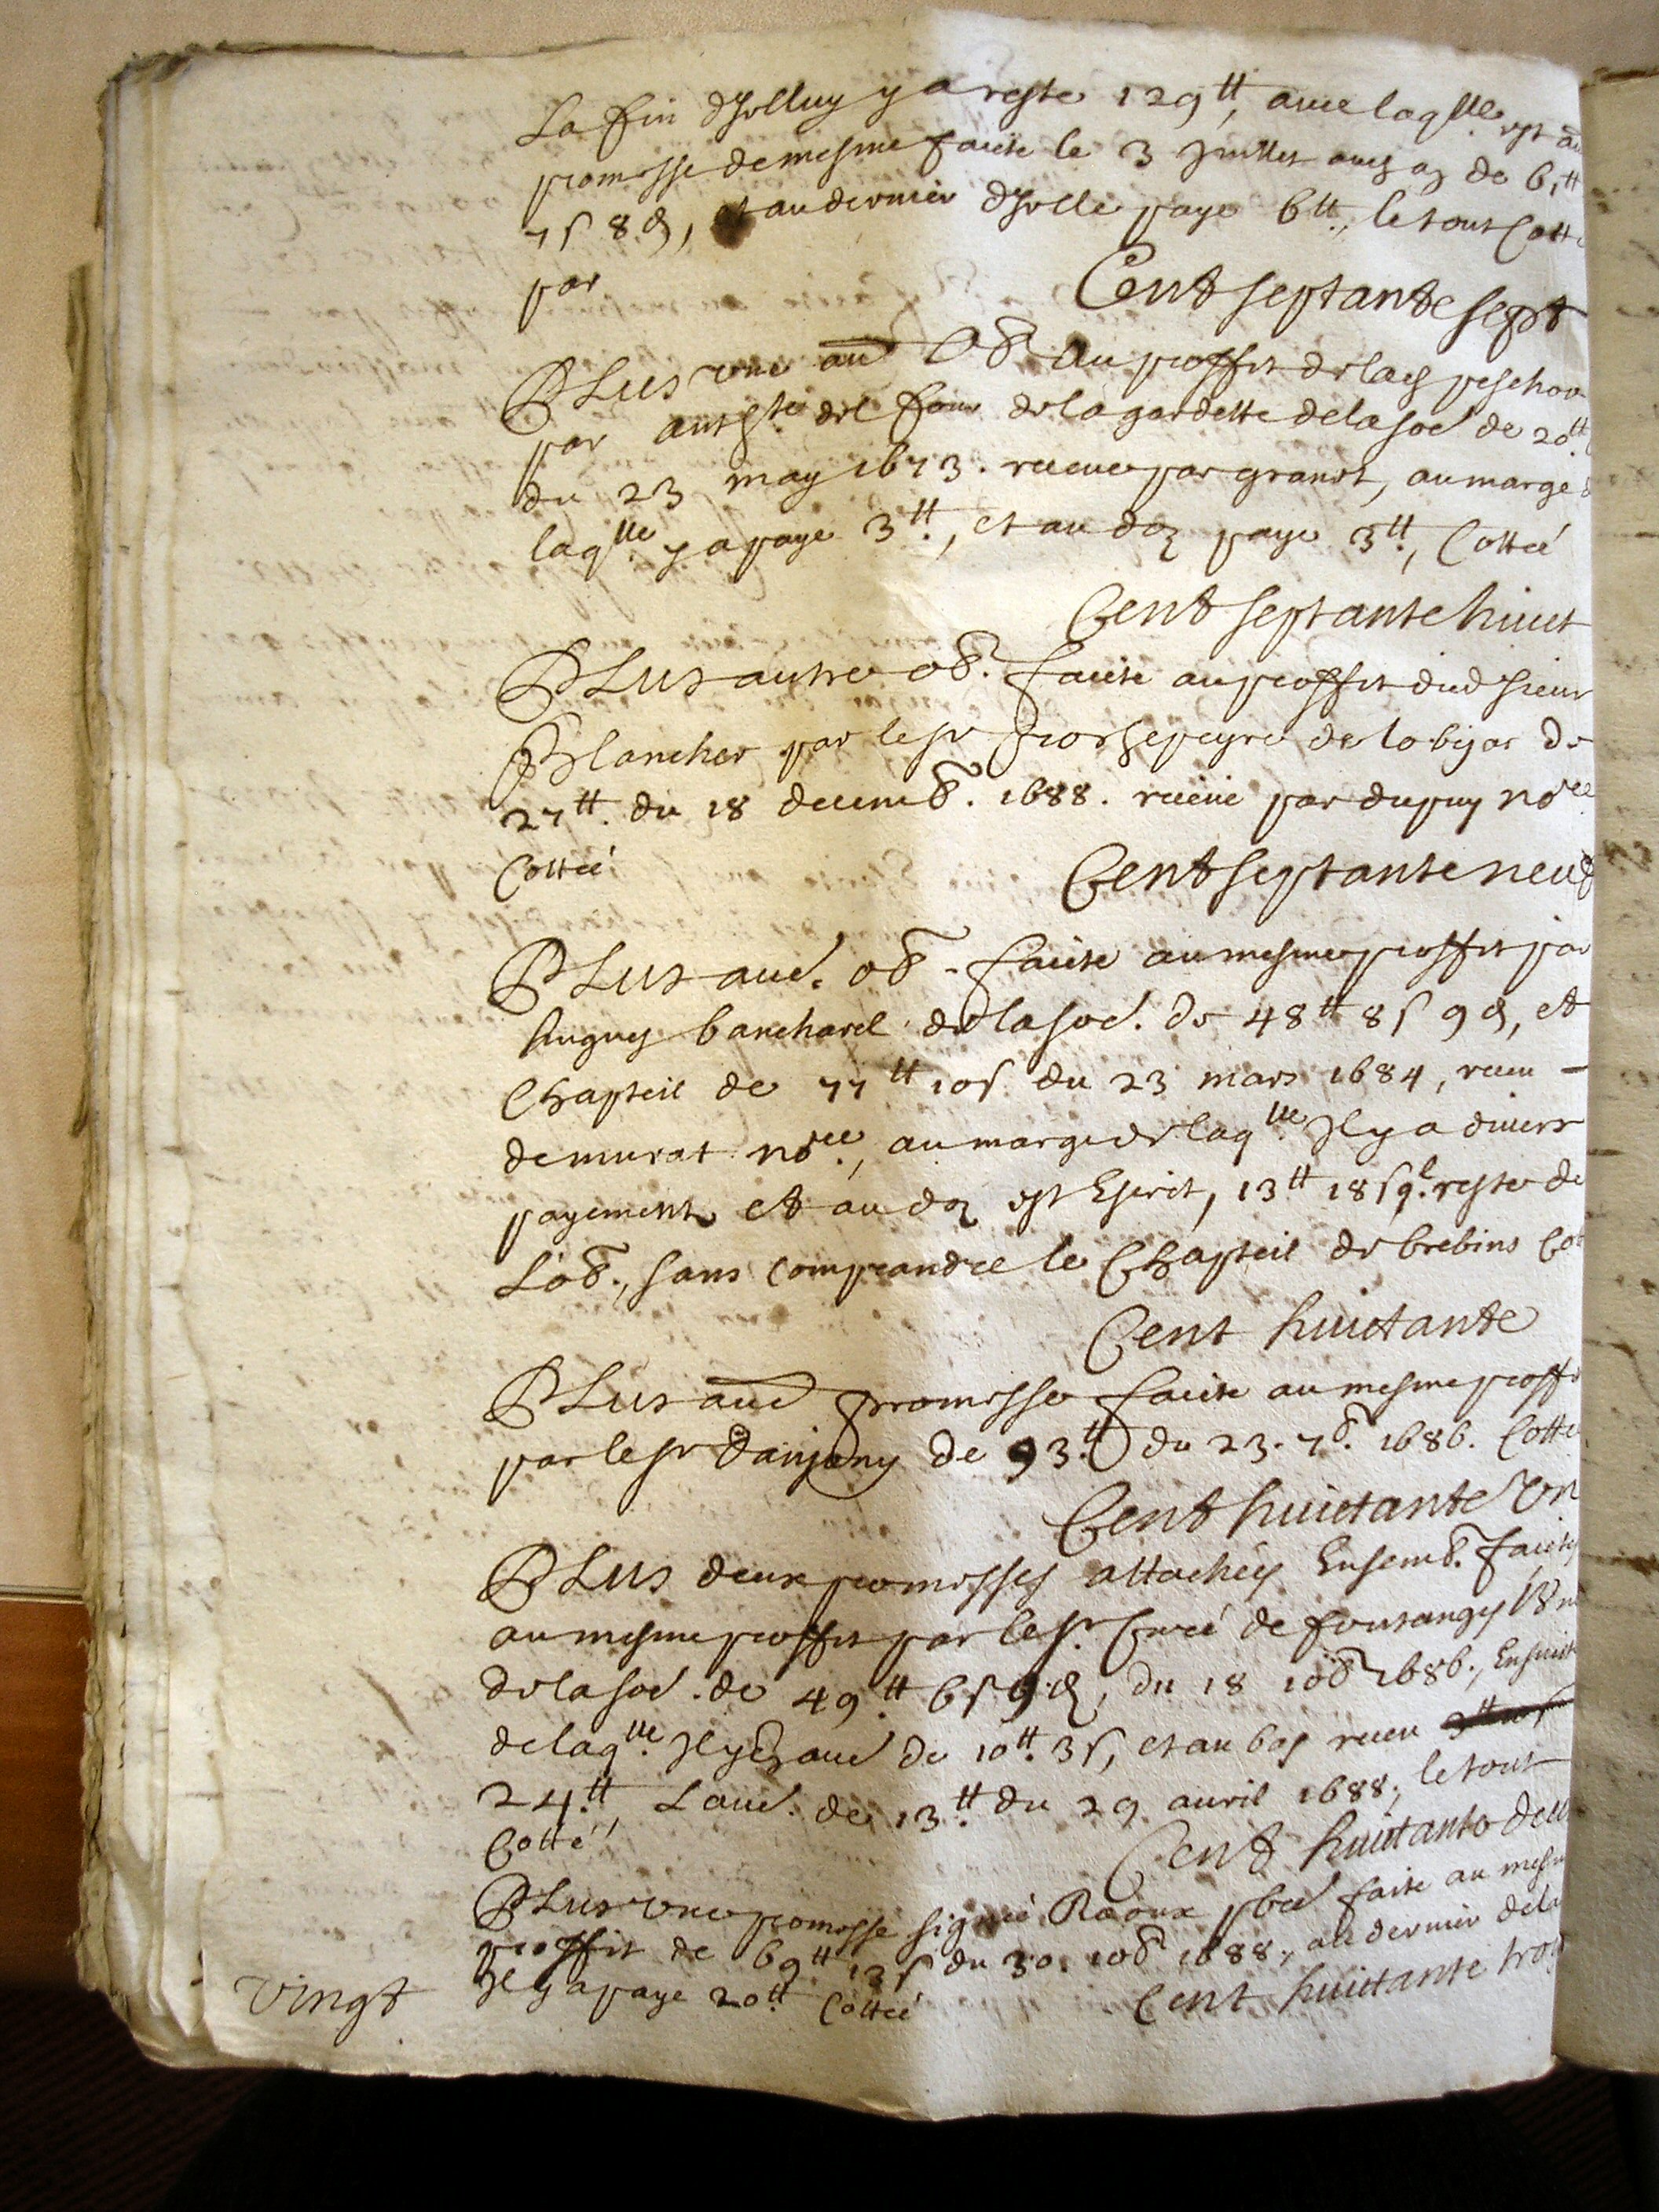 La fin d'jcelluy y a reste 129 tt, auec laqlle est au
promesse de mesme faicte le 3 juillet aud an de 61 tt
7 s 8 d, et au dernier d'jcelle paye 6 tt, le tout Cotté
par
Cent septante sept
PLus vne aut ob au proffit de lad
par du four de la gardette de la so de 20 tt
du 23 may 1673. receue par granet, au marge de
laqlle y a paye 3 tt, et au doz paye 3 tt, Cottée
Cent septante huict
PLus autre ob. faicte au proffit dud sieur
Blancher par le sr de lobijac de
27 tt. du 18 decemb. 1688. receue par dupuy nore
Cottée
Cent septante neuf
PLus aut. ob. faicte au mesme proffit par
hugues bancharel de la so. de 48 tt 8 s 9 d, et
Chapteil de 77 tt 10 s. du 23 mars 1684, receu
demurat nore, au marge de laqlle Jl y a diuers
payements et au doz est Escrit, 13 tt 18 s 9 d. reste de
L'ob., sans comprandre le Chapteil de brebins Cot
Cent huictante
PLus aut promesse faicte au mesme proffi
par le sr Danjony de 93 tt du 23. 7b. 1686. Cotté
Cent huictante vn
PLus deux promesses attachées Ensemb. faictes
au mesme proffit par le sr. Curé de fontanges
de la so. de 49 tt 6 s 9 d, du 18 10b 1686, Ensuitte
de laqlle Jl y en a aut de 10 tt. 3 s, et au bas receu
24 tt, L'aut. de 13 tt du 29 auril 1688, le tout
Cotté
Cent huictante deux
PLus vne promesse signée Raoux pbre faite au mesme
proffit de 69 tt 13 s du 30. 10b 1688, au dernier de la
Jl y a paye 20 tt Cottée
Cent huictante troys
vingt